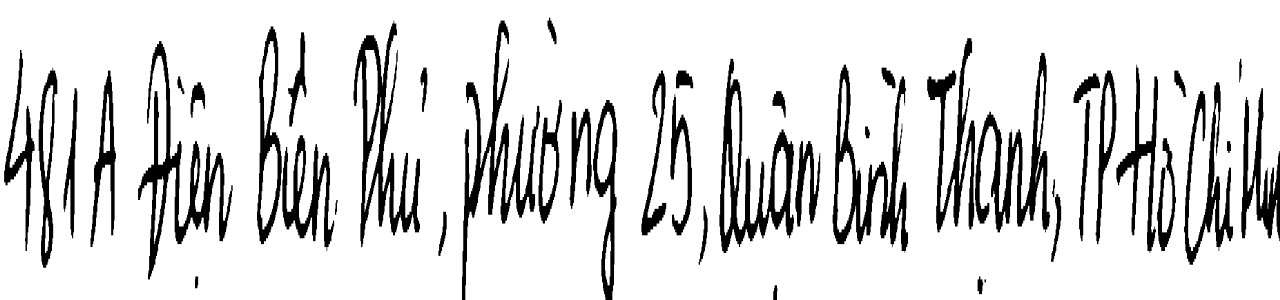 481A Điện Biên Phủ, phường 25, Quận Bình Thạnh, TP Hồ Chí Min